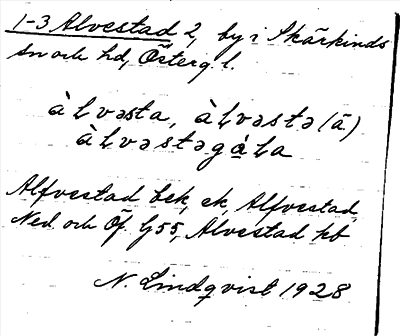 1-3 Alvestad 2, by i Skärkinds
sn och hd, Österg. l.
àLvəsta, àLvəstə (ā)
àLvəstəgạ̀La
Alfvestad bek, ek, Alfvestad
Ned. och Öf. G55, Alvestad kb
N. Lindqvist 1928